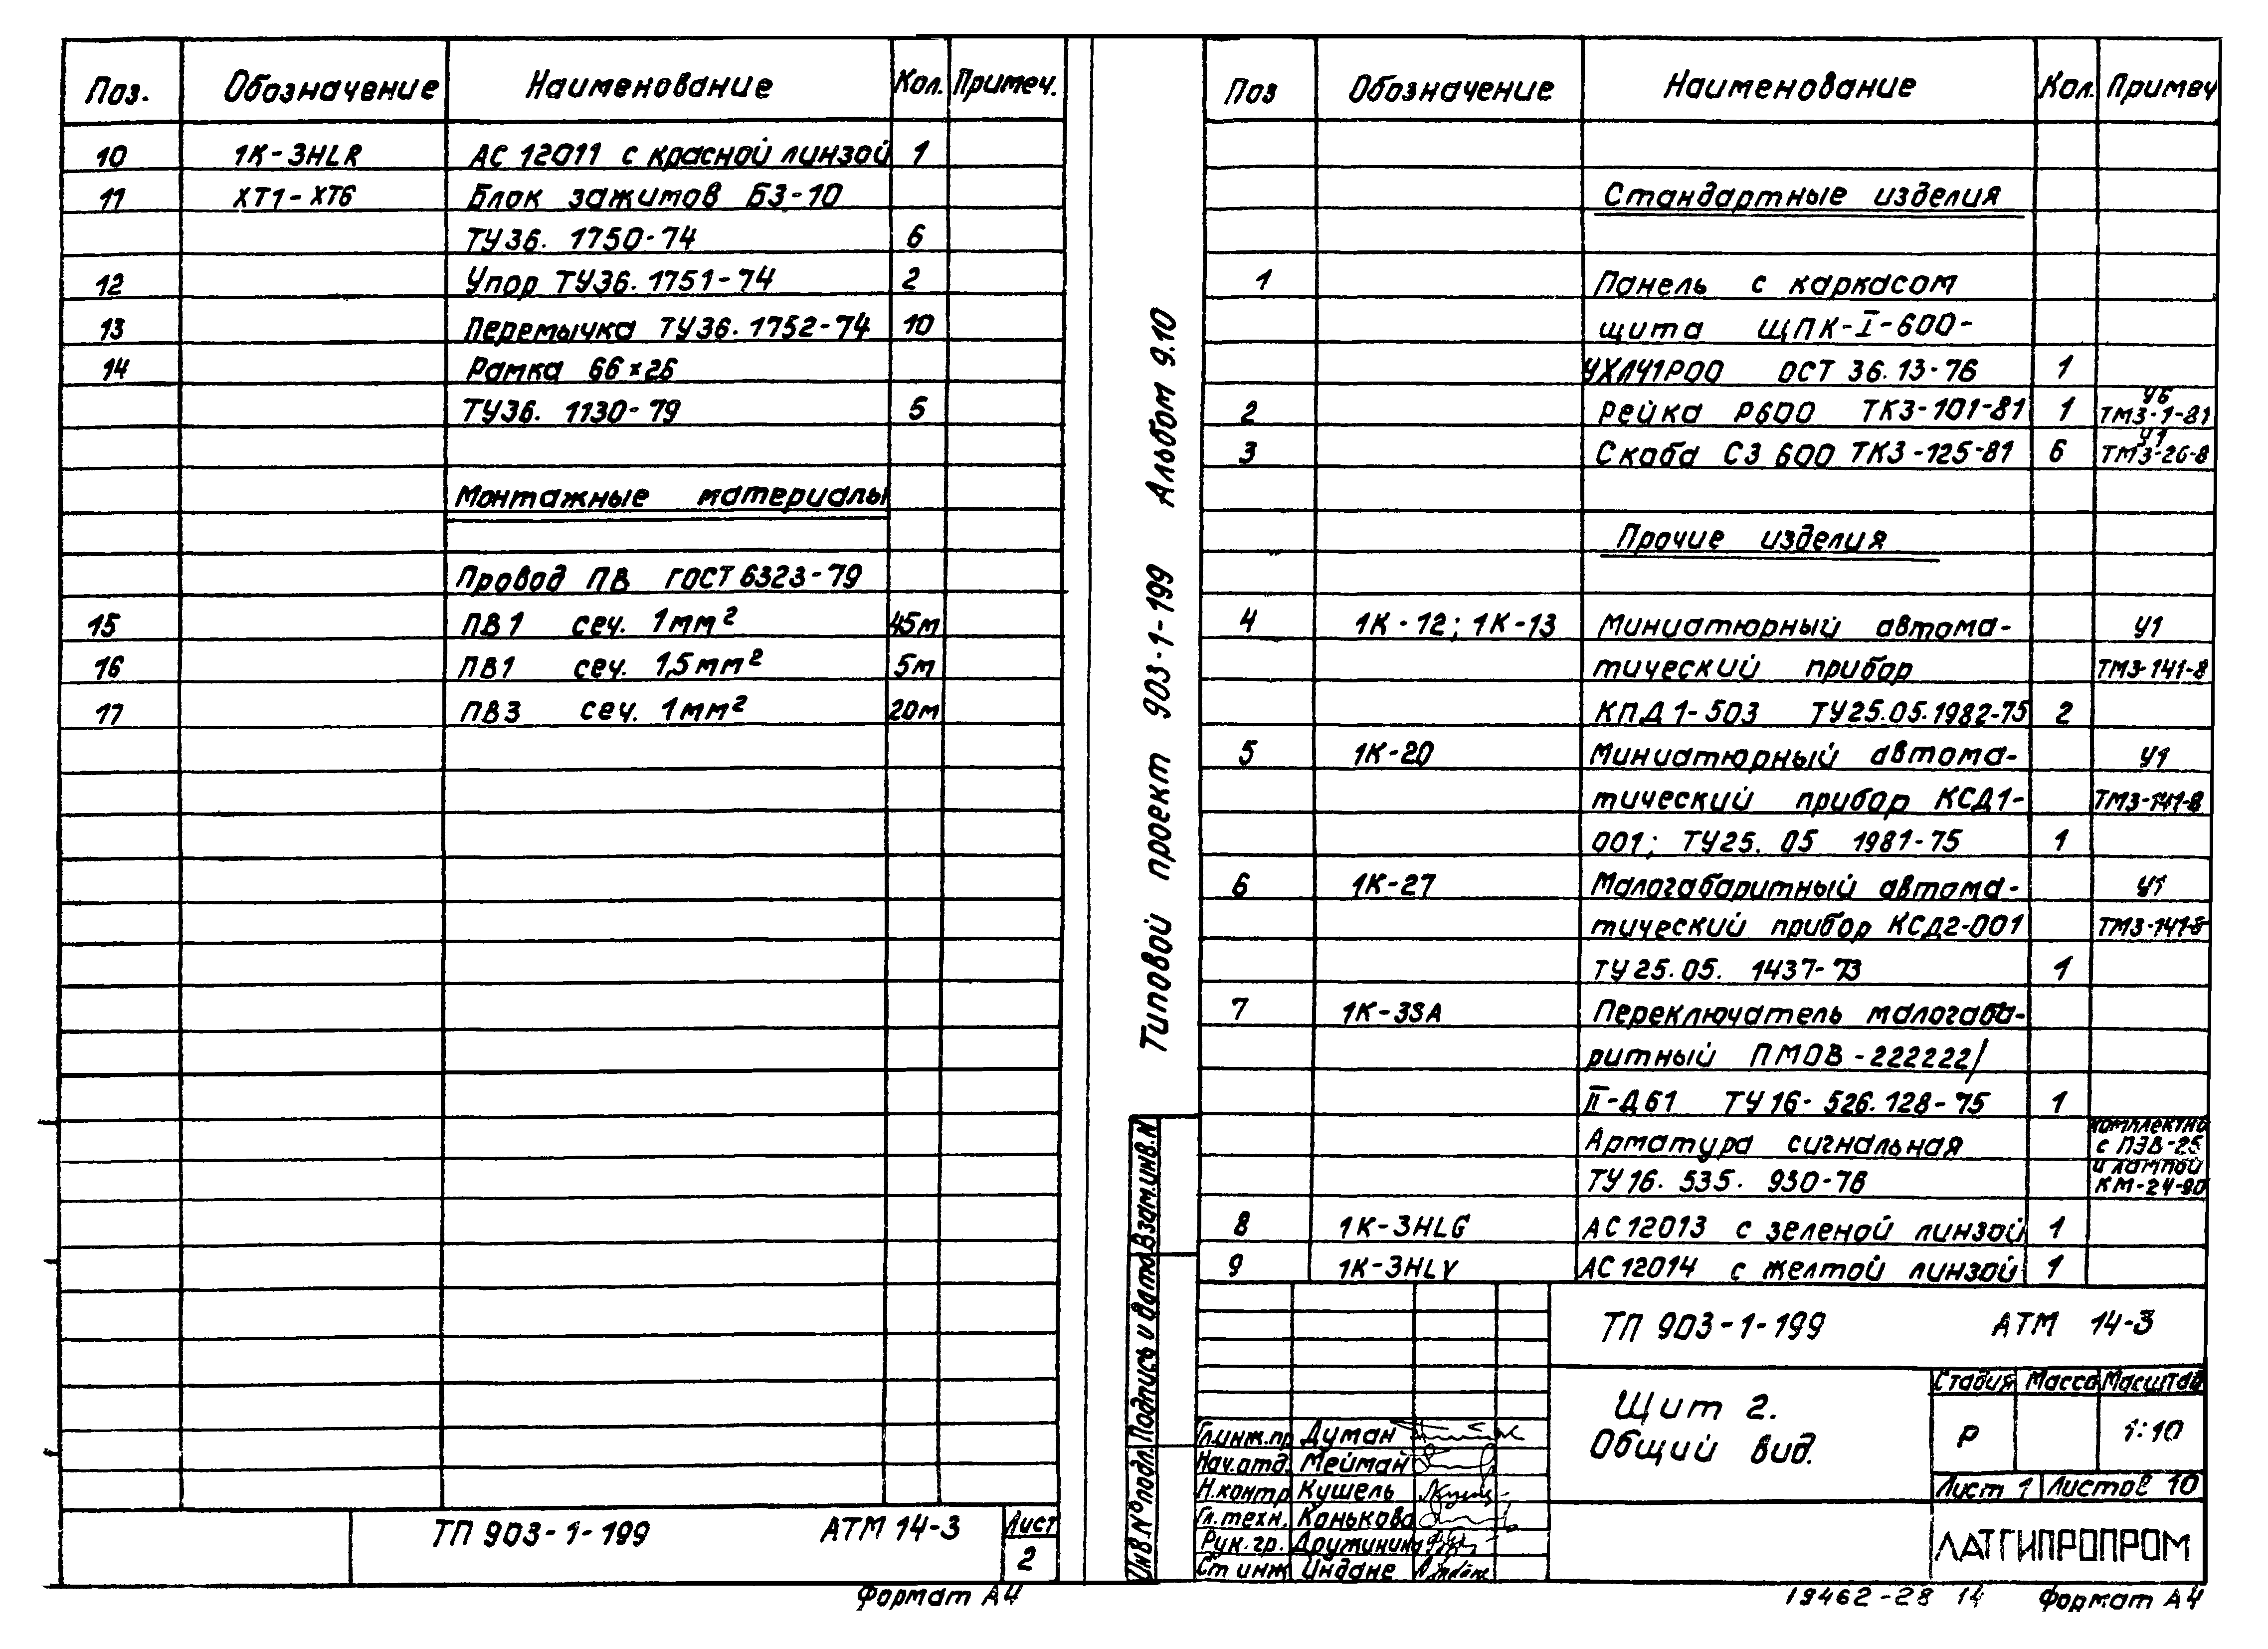 Поз. Обозначение Наименование Кол. Примеч.
10 1К-3HLR АС 12011 с красной линзой 1
11 XT1-XT6 Блок зажимов БЗ-10
ТУ36. 1750-74 6
12 Упор ТУ36. 1751-74 2
13 Перемычка ТУ36. 1752-74 10
14 Рамка 66×26
ТУ36. 1130-79 5
Монтажные материалы
Провод ПВ ГОСТ 6323-79
15 ПВ1 сеч. 1мм² 45м
16 ПВ1 сеч. 1,5мм² 5м
17 ПВ3 сеч. 1мм² 20м
ТП 903-1-199 АТМ 14-3 Лист
2
Формат А4
Типовой проект 903-1-199 Альбом 9.10
Поз Обозначение Наименование Кол. Примеч
Стандартные изделия
1 Панель с каркасом
щита ЩПК-I-600-
УХЛЧ1Р00 ОСТ 36.13-76 1
2 Рейка Р600 ТК3-101-81 1 У6 ТМ3-1-81
3 Скоба С3 600 ТК3-125-81 6 У1 ТМ3-26-8
Прочие изделия
4 1К-12; 1К-13 Миниатюрный автома- У1
тический прибор ТМ3-141-8
КПД1-503 ТУ25.05.1982-75 2
5 1К-20 Миниатюрный автома- У1
тический прибор КСД1- ТМ3-141-8
001; ТУ25. 05 1981-75 1
6 1К-27 Малогабаритный автома- У1
тический прибор КСД2-001 ТМ3-141-8
ТУ25.05. 1437-73 1
7 1К-3SA Переключатель малогаба-
ритный ПМОВ-222222/
II-Д61 ТУ16-526.128-75 1
Арматура сигнальная комплектно с ПЭВ-25
ТУ16. 535. 930-76 и лампой КМ-24-90
8 1К-3HLG АС12013 с зеленой линзой 1
9 1К-3HLY АС12014 с желтой линзой 1
Взам.инв.N
Подпись и дата
Инв.N°подл.
ТП 903-1-199 АТМ 14-3
Щит 2.
Общий вид.
Стадия Масса Масштаб
Р 1:10
Лист 1 Листов 10
Гл.инж.пр Думан
Нач.отд. Мейман
Н.контр Кушель
Гл.техн. Конькова
Рук.гр. Дружинина
Ст инж Индане
ЛАТГИПРОПРОМ
19462-28 14 Формат А4